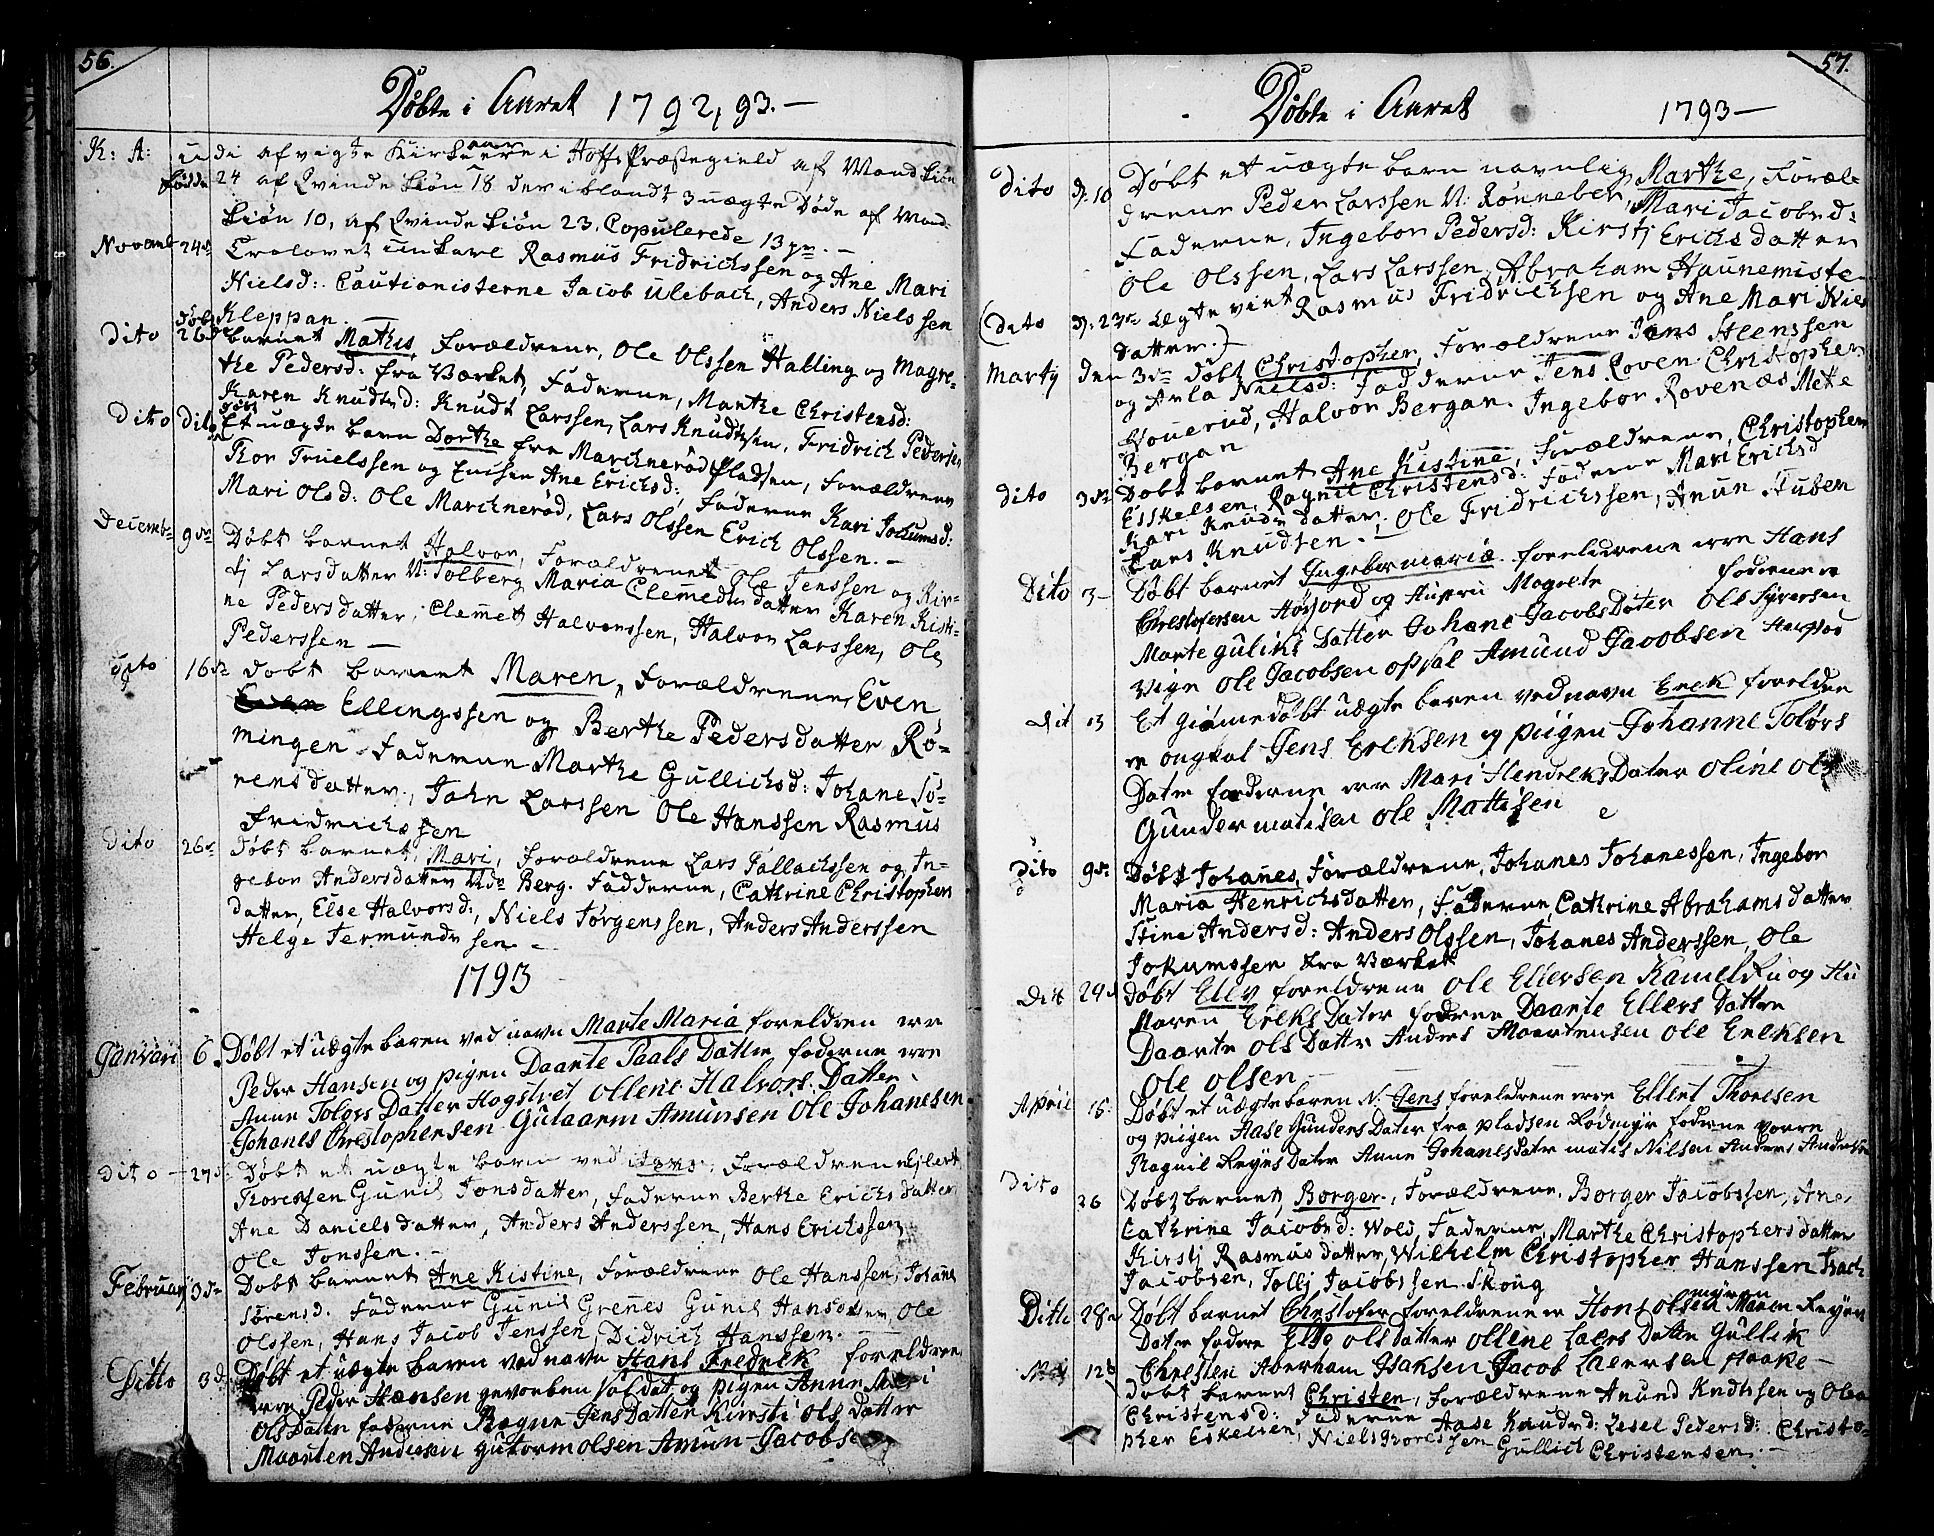 56.
Döbte i Aaret 1792, 93.—
K: A: udi afvigte Kirke aare i Hoffs Præstegield af Mandkiön
födde 24 af Qvindekiön 18 der iblandt 3 uægte Döde af Mand-
kiön 10, af Qvindekiön 23, Copulerede 13 pr. —
Novemb 24 Troelovet unkarl Rasmus Fridrichssen og Ane Mari
Nielsd: Cautionisterne Jacob Ulebach, Anders Nielssen
Kleppan. —
Dito 26 döbt barnet Mathis, Forældrene, Ole Olssen Halling og Magre-
the Pedersd: fra Værket, Fadderne, Marthe Christensd:
Karen Knudsd: Knudt Larssen, Lars Knudtssen, Fridrich Pederssen
Dito dito döbt Et uægte barn Dorthe fra Marchneröd Pladsen, Forældrene
Thor Truelssen og Ane Erichsd:, Faderne Kari Jochumsd:
Mari Olsd: Ole Marchneröd, Lars Olssen Erich Olssen. —
Decembr 9de Döbt barnet Halvor, Forældrene Ole Jenssen og Kir-
tj Larsdatter N: Tolberg Maria Clemedtsdatter Karen Kisti-
ne Pedersdatter, Clemet Halvorssen, Halvor Larssen, Ole
Pederssen —
Dito 16de döbt barnet Maren, Forældrene, Even
Ellingssen og Berthe Pedersdatter Rö-
mingen. Faderne Marthe Gullichsd: Johane Sö-
rensdatter, John Larssen Ole Hanssen Rasmus
Fridrichssen
Dito 26de Döbt barnet, Mari, Forældrene Lars Tallachssen og In-
gebor Andersdatter Berg. Fadderne, Cathrine Christophers
datter, Else Halvorsd:, Niels Jörgenssen, Anders Anderssen
Helge Termundssen —
1793
Janvari 6. Döbt et uægte baren ved navn Marte Maria foreldren ere
Peder Hansen og pigen Daarte Paals Datter foderne ere
Anne Tolörs Datter Hogstvet Ollene Halvors Datter
Johanes Chrestophersen Gulaarm Amunsen Ole Johanesen
Dito — 27de Döbt et uægte barn ved Forældrene Ejlert
Thoressen Gunil Jonsdatter, faderne Berthe Erichsdatter
Ane Danielsdatter, Anders Anderssen, Hans Erichssen
Ole Jonssen. —
Februarj 3de Döbt barnet Ane Kistine, Forældrene Ole Hanssen, Johane
Sörensd. Faderne Gunil Grenes Gunil Hansdatter Ole
Olssen, Hans Jacob Jenssen, Didrich Hanssen. —
Ditto 3d Döbt et uægte baren ved navn Hans Fredrek foreldren
ere Peder Hansen gevorben soldat og pigen Anne
Ols Datter faderne Ragne Jens Datter Kirsti Ols datter
Maarten Andersen gutorm olsen Amun Jacobs
57.
Döbte i Aaret 1793—
Dito d: 10 Döbt et uægte barn navnlig Marthe, Foræl-
drene Peder Larssen N: Rönneber, Mari Jacobsd:
Faderne, Ingebor Pedersd: Kirstj Erichsdatter
Ole Olssen, Lars Larssen, Abraham Haunemiste
(dito d: 23de Ægte viet Rasmus Fridrichsen og Ane Mari Niels
datter.)
Martj den 3de döbt Christopher, Forældrene Jens Steenssen
og Arla Nielsd: Fadderne Jens Christopher
Houerud, Halvor Bergan. Ingebor Rovenæs Mette
Bergan
dito 3de Döbt barnet Ane Kistine, Forældrene, Christopher
Esskelsen, Ragnil Christensd: Faderne Mari Erichsd
Kari Knudsdatter, Ole Fridrichssen, Anun Stuben
Lars Knudsen. —
Dito 3— Döbt barnet Ingebor maria foreldrene ere Hans
Chrestofersen Höyjord og Magrete foderne er
Marte gulike Datter Johane Jacobs Doter Ole Syversen
Vign Ole Jacobsen opsal Amund Jacobsen
Dit 13 Et giæmedöbt uægte baren ved navn Erek foreldre
er ongkal Jens Ereksen og piigen Johanne Tolörs
Dater foderne ere Mari Hendreks Dater oline Ols
Gunder matisen ole Mattisen
Dito 9de Döbt Johanes, Forældrene, Johanes Johanessen, Ingebor
Maria Henrichsdatter, Faderne, Cathrine Abrahamsdatter
Stine Andersd: Anders Olssen, Johanes Anderssen, Ole
Jokumssen fra Værket
Dit 24 döbt foreldrene ole Ellersen og
Maren Ereks Dater fodrene Daarte Ellers Datter
Daarte ols Datter Anders Maartensen ole Ereksen
ole olsen —
Aprie 15 Döbt et uægte baren N. Jens foreldrene ere Ellert Thoresen
og piigen Aase Gunders Dater fra pladsen Rödmyr foderne vorre
Ragnil Reyes Dater Anne Johanes Dater matis Nilsen Anders Andersen
Dito 26 Döbt barnet, Borger, Forældrene, Borger Jacobssen, Ane
Cathrine Jacobsd: Wold, Faderne, Marthe Christophersdatter
Kirstj Rasmusdatter, Wilhelm Christopher Hanssen Isach
Jacobsen, Tollj Jacobssen Skoug
Ditto 28 Döbt barnet Chrestofer foreldrene er Hons olsen myren Maren Reyers
Dater fodere Else ols datter ollene Laers Datter Gullik
Chresten Aberham Isaksen Jacob Laersen Haake —
Maj 12 Döbt barnet Christen, Forældrene Anund Kndtssen og Olea
Christensd: Faderne Aase Knudsd: Lesel Pedersd: Christo-
pher Eskelsen, Niels Thoressen Gullich Christensen. —